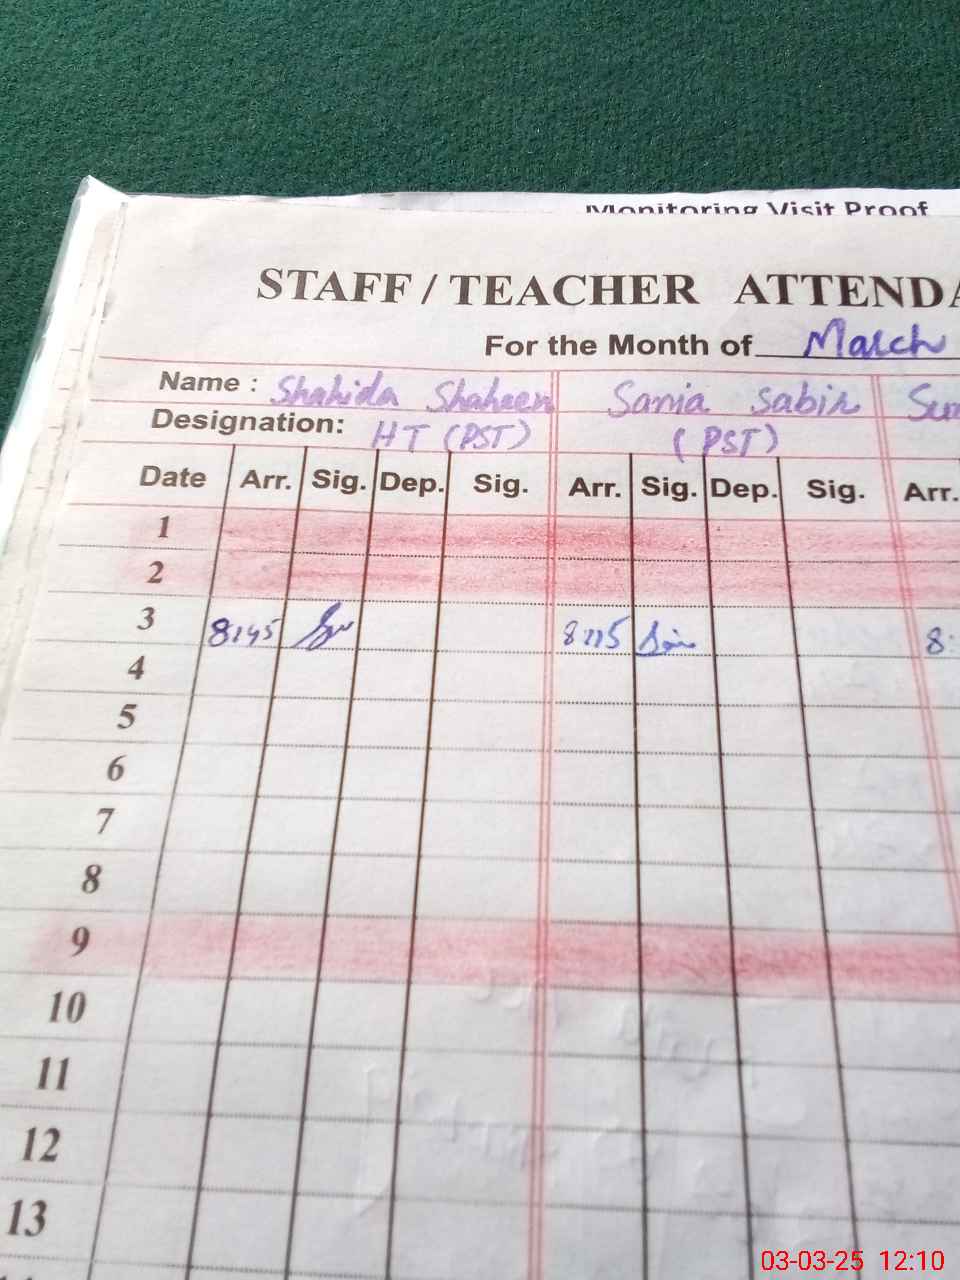 Monitoring Visit Proof
STAFF / TEACHER ATTENDA
For the Month of March
Name : Shahida Shaheen Sania Sabir
Designation: HT (PST) (PST)
Date Arr. Sig. Dep. Sig. Arr. Sig. Dep. Sig. Arr.
1
2
3 8:45 8:15 8:
4
5
6
7
8
9
10
11
12
13
03-03-25 12:10